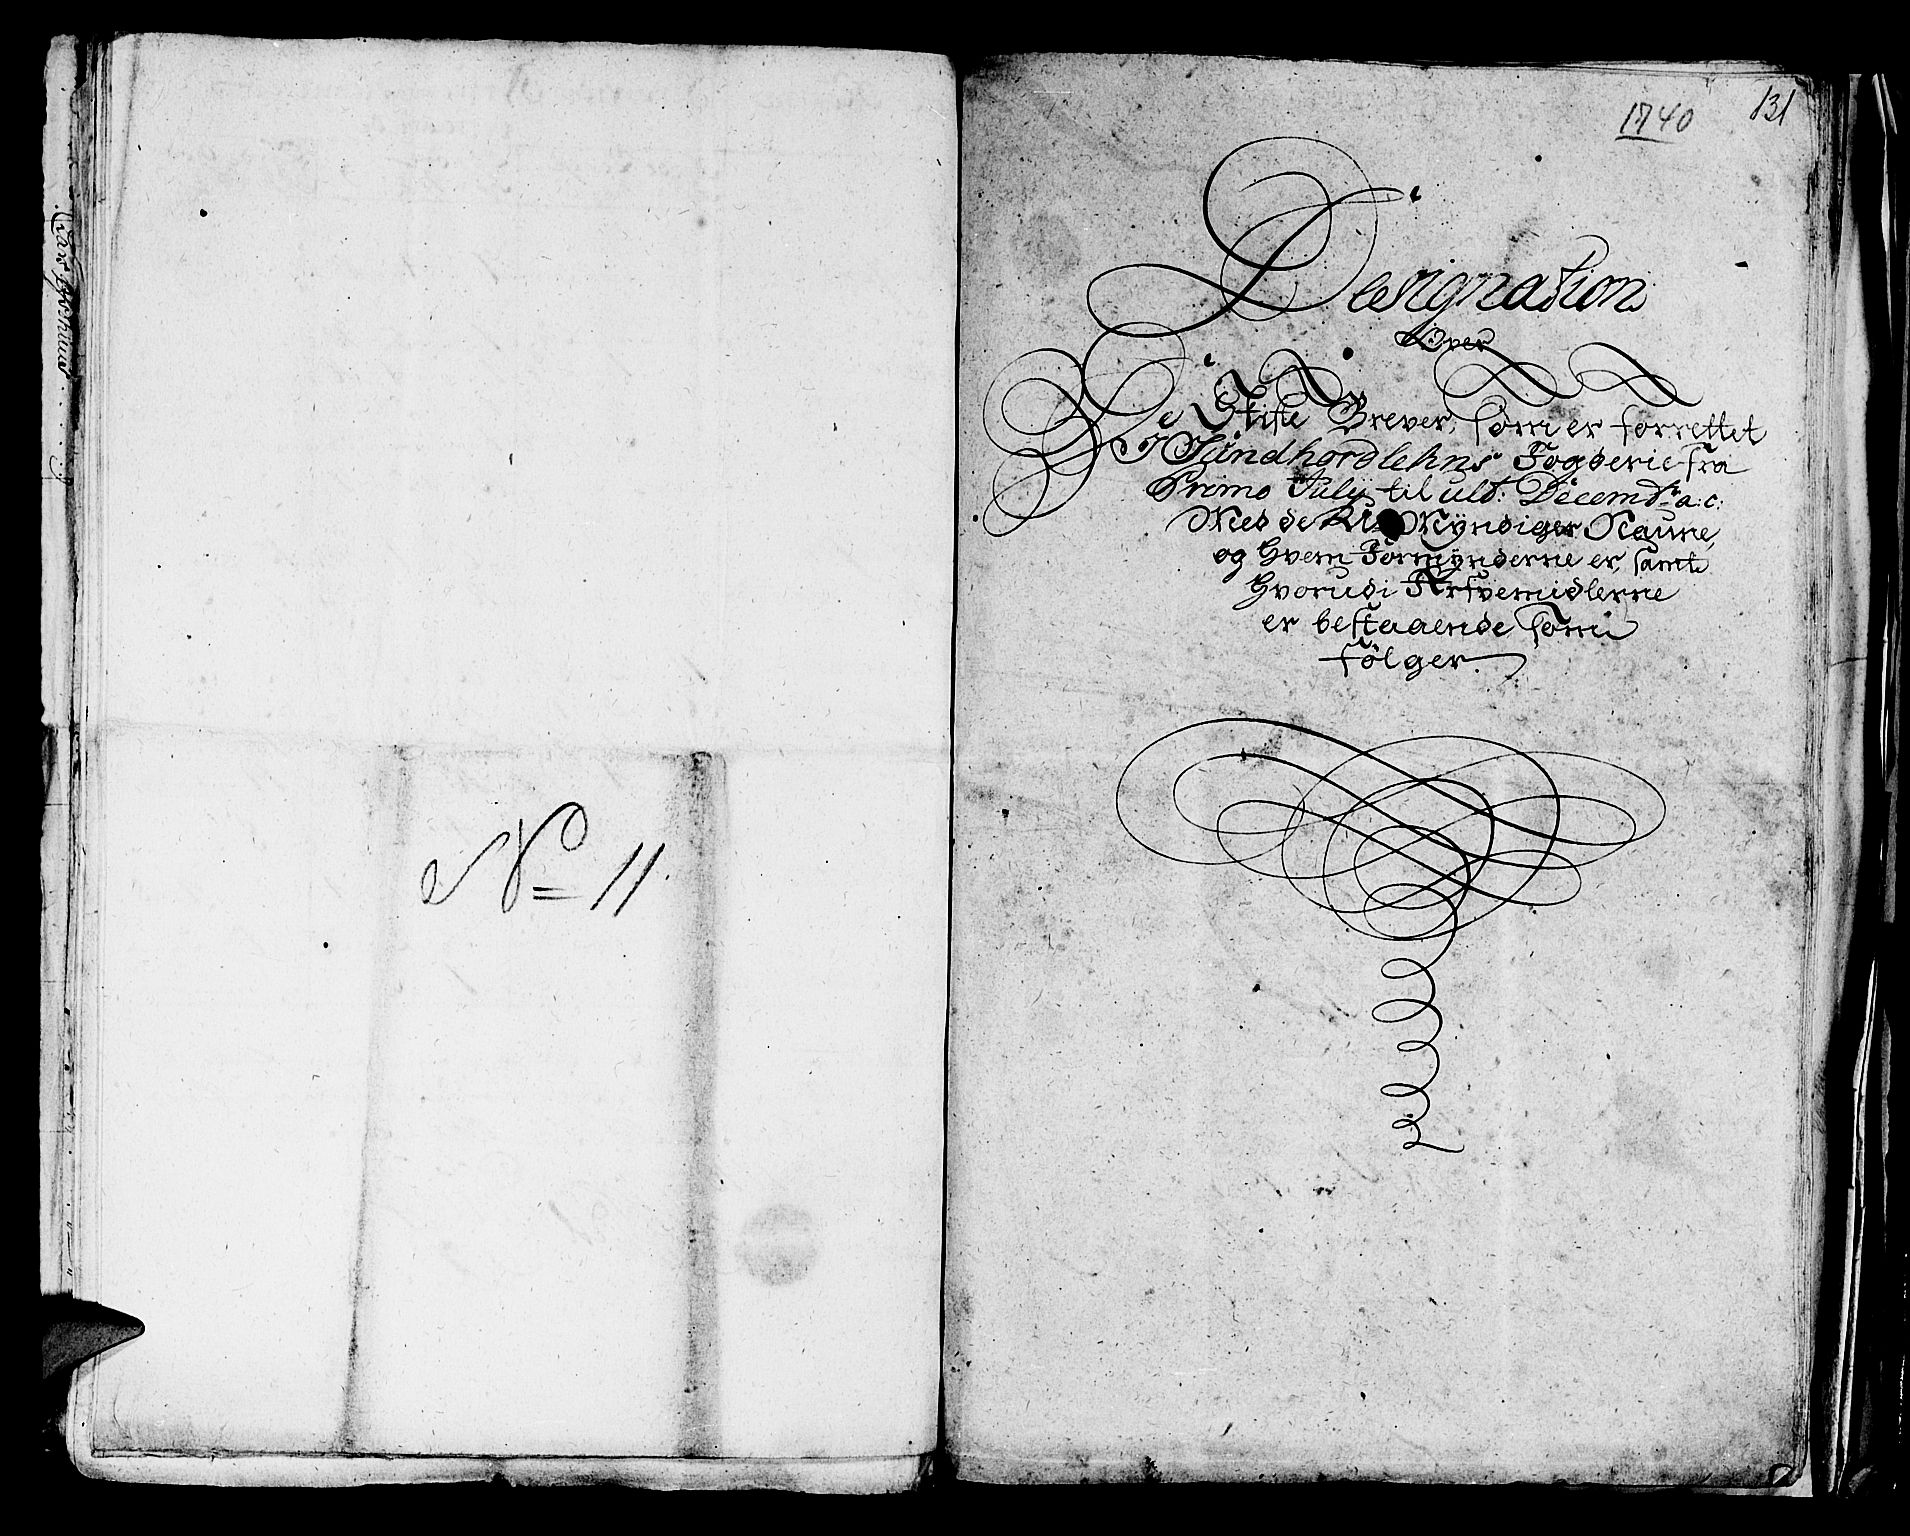 No 11.
1740
131
Designation
Over
De Skifte Brever, som er forrettet
I Sundhordlehns Fogderie fra
Primo July til ult: Decembr a: c:
Med de Myndiger Naune,
og Hvem Formynderne er, samt
Hvorudi Arfvemidlerne
er bestaaende som
følger.